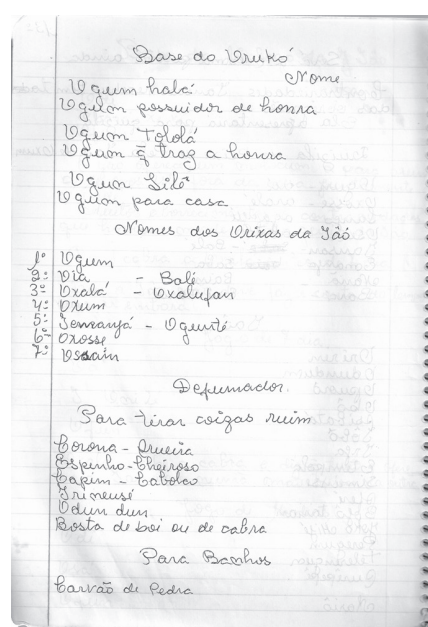 Base do Orukó
Nome
Ogum halá
Ogum possuidor de honra
Ogum Tololá
Ogum q̃ traz a honra
Ogum Silé
Ogum para casa
Nomes dos Orixas da Iáô
1º Ogum
2º Oiá - Balé
3º Oxalá - Oxalufan
4º Oxum
5º Iemanjá - Ogunté
6º Oxosse
7º Ossain
Defumador
Para tirar coizas ruim
Corona - Arueira
Espinho - Cheiroso
Capim - Caboloo
Irineusé
Odun dun
Bosta de boi ou de cabra
Para Banhos
Carvão de Pedra